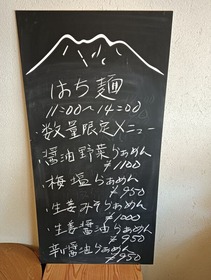 はち麺
11:00〜14:00
・数量限定メニュー
・醤油野菜らぁめん
¥1100
・梅塩らぁめん
¥950
・生姜みそらぁめん
¥1000
・生姜醤油らぁめん
¥950
・辛い醤油らぁめん
¥950